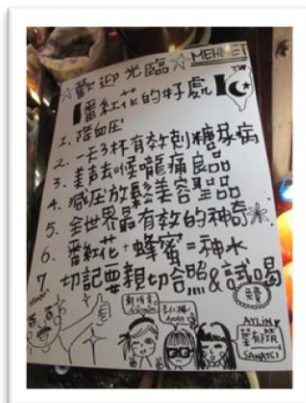 ☆歡迎光臨☆MEHMET
番紅花的好處 TW
1. 降血压
2. 一天3杯有效剋糖尿病
3. 美声去喉龍痛良品
4. 減压放鬆美容聖品
5. 全世界最有效的神奇
6. 番紅花+蜂蜜=神水
7. 切記要親切合照&試喝
免費
AYLIN
SANATCI